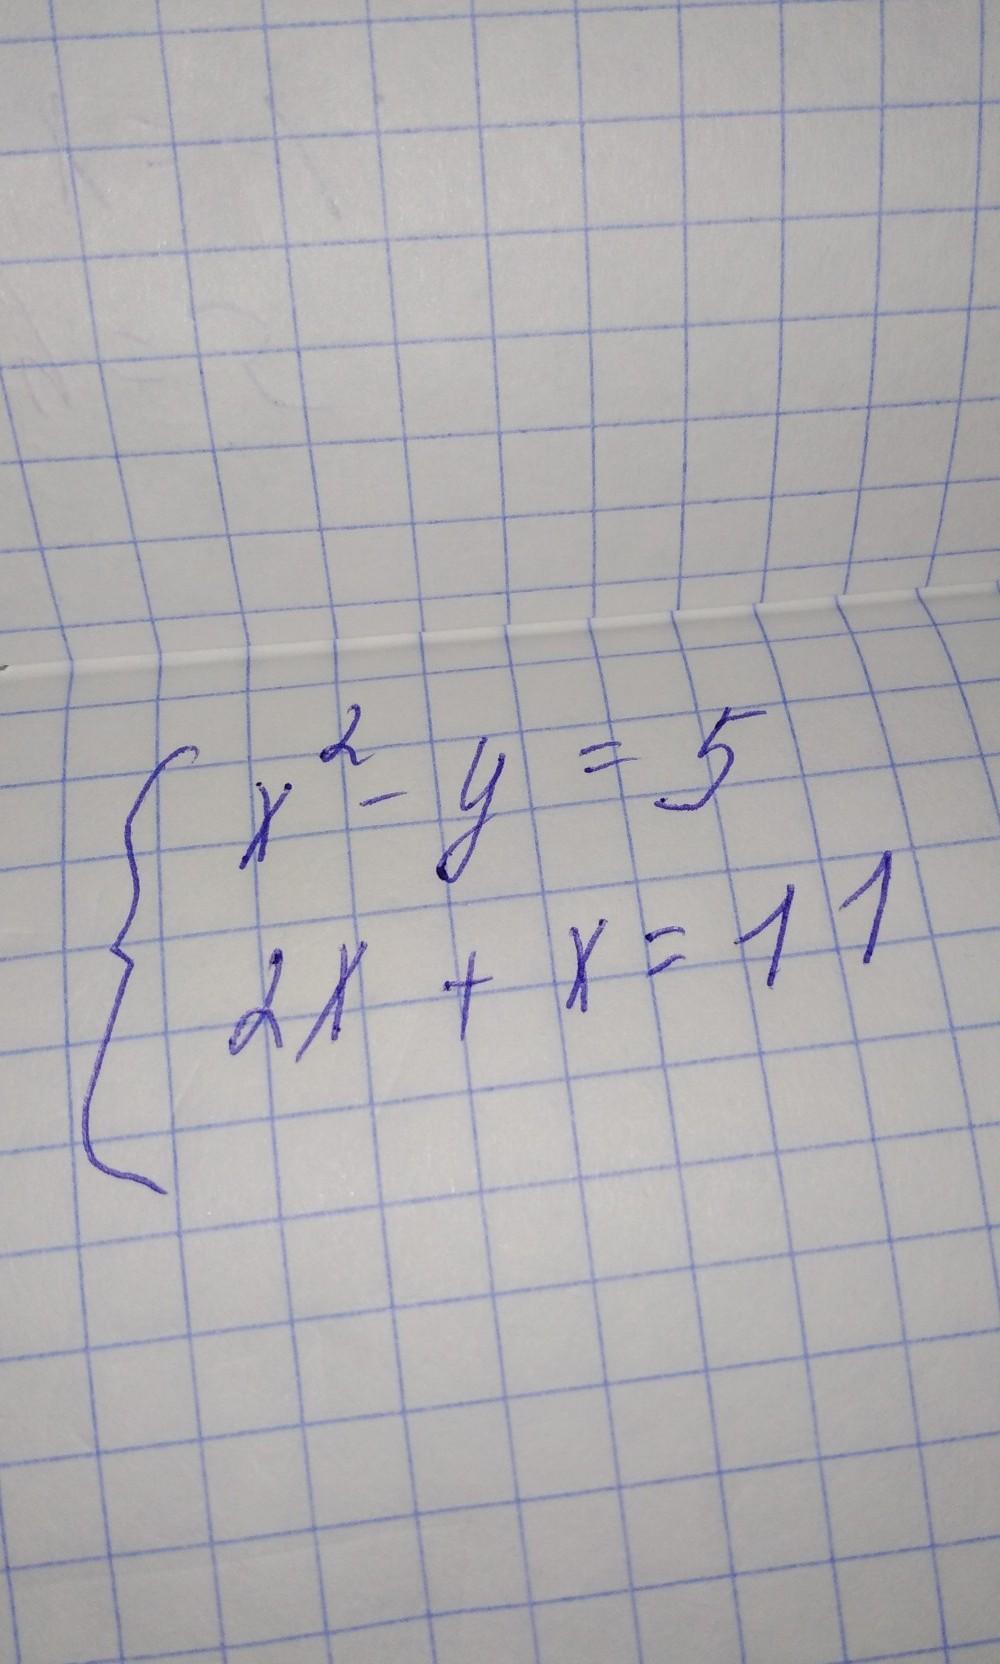 x² - y = 5
2x + x = 11